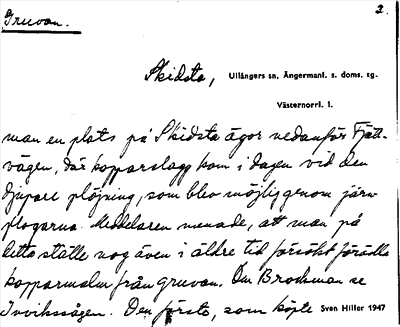 Gruvan. 2.
Skidsta, Ullångers sn, Ångermanl. s. doms. tg.
Västernorrl. l.
man en plats på Skidsta ägor nedanför Fjäll-
vägen, där kopparslagg kom i dagen vid den
djupare plöjning, som blev möjlig genom järn-
plogarna. Meddelaren menade, att man på
detta ställe nog även i äldre tid försökt förädla
kopparmalm från gruvan. Om Brockman se
Invikssågen. Den första, som köpte Sven Hiller 1947